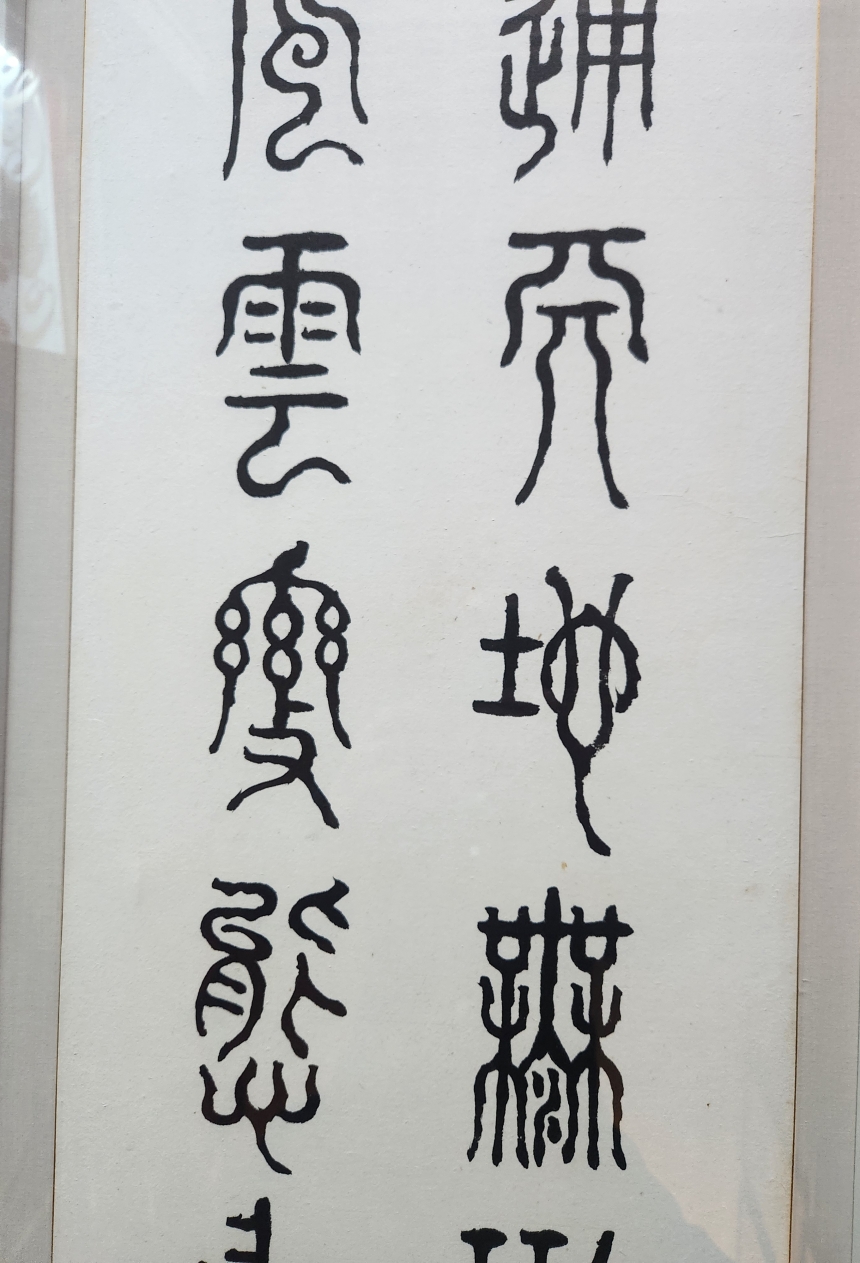 通天地無
風雲變態